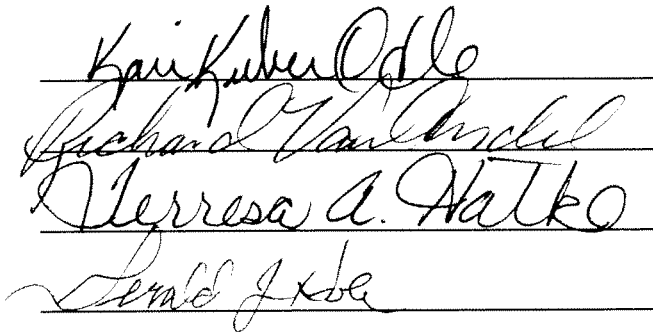 Kari Kuber Odle
Richard VanAndel
Terresa A. Hatko
Gerald J